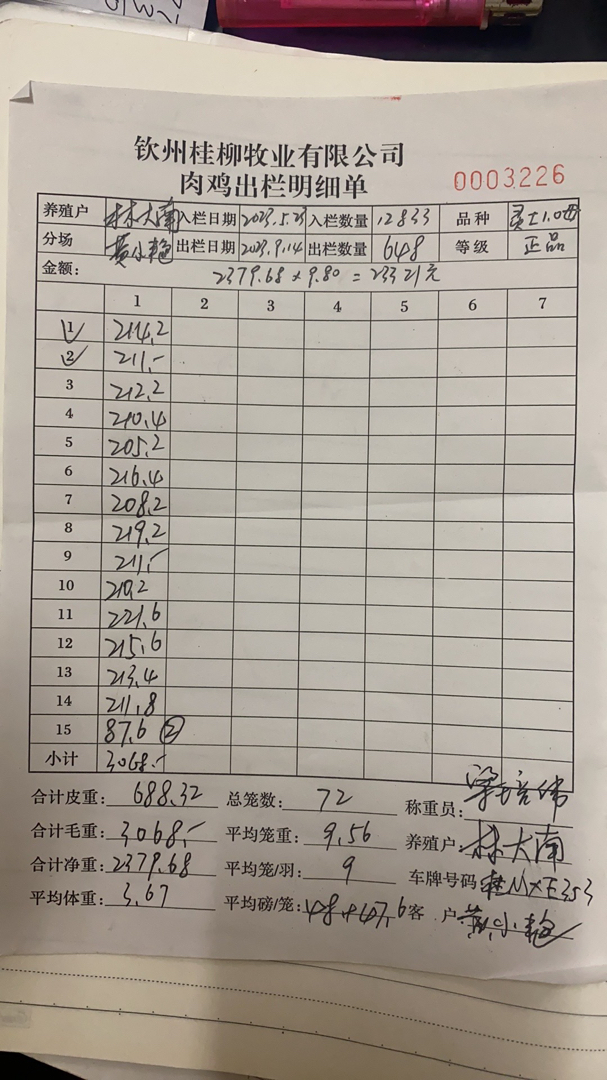 钦州桂柳牧业有限公司
肉鸡出栏明细单
0003226
养殖户 林大南 入栏日期 2023.5.23 入栏数量 12833 品种
分场 黄小艳 出栏日期 2023.9.14 出栏数量 648 等级 正品
金额: 2379.68×9.80=23321元
1 2 3 4 5 6 7
1 214.2
2 211.-
3 212.2
4 210.4
5 205.2
6 216.4
7 208.2
8 219.2
9 211.-
10 210.2
11 221.6
12 215.6
13 213.4
14 211.8
15 87.6 ②
小计 3068.-
合计皮重: 688.32 总笼数: 72 称重员: 梁培伟
合计毛重: 3068.- 平均笼重: 9.56 养殖户: 林大南
合计净重: 2379.68 平均笼/羽: 9 车牌号码 桂MXE353
平均体重: 3.67 平均磅/笼: 客户 黄小艳